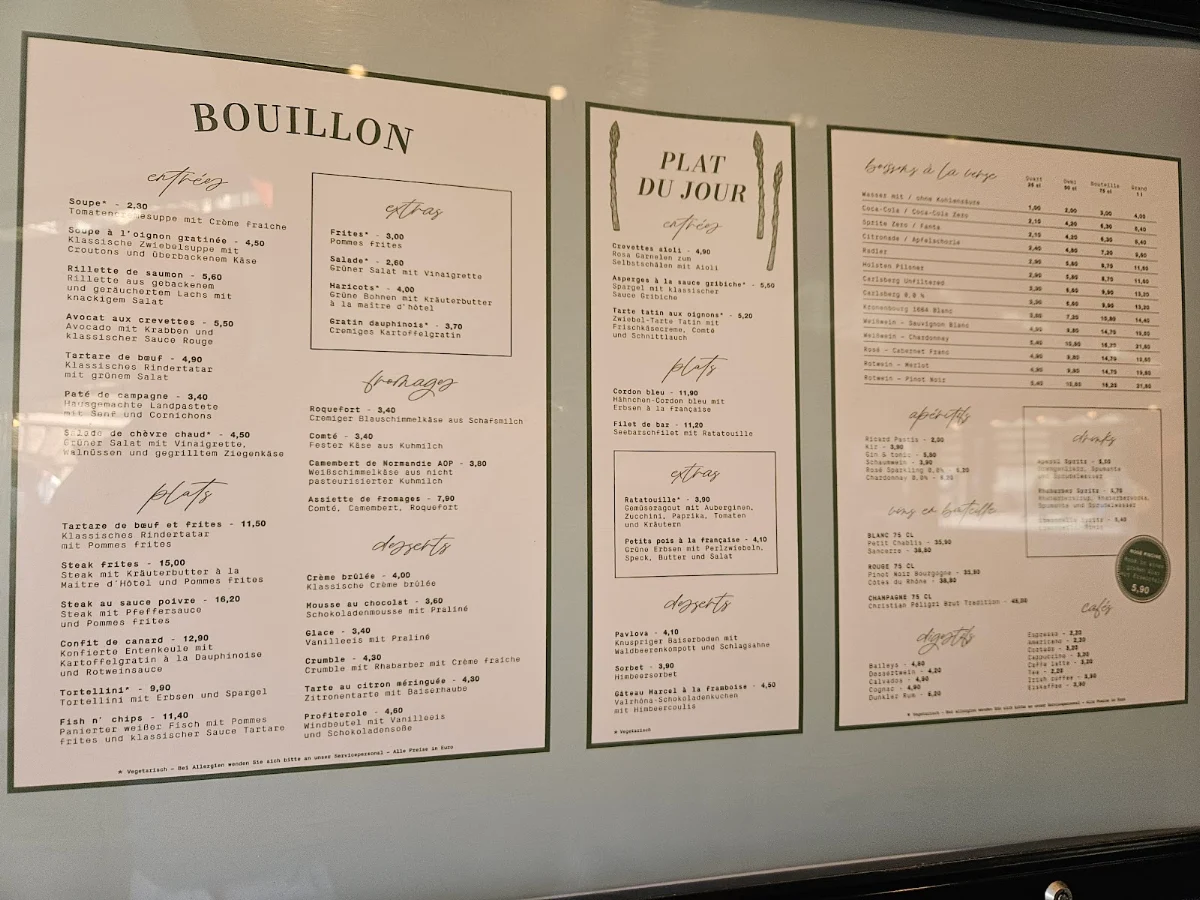 BOUILLON
entrées
Soupe* - 2,30
Tomatencremesuppe mit Crème fraîche
Soupe à l'oignon gratinée - 4,50
Klassische Zwiebelsuppe mit
Croutons und überbackenem Käse
Rillette de saumon - 5,60
Rillette aus gebackenem
und geräuchertem Lachs mit
knackigem Salat
Avocat aux crevettes - 5,50
Avocado mit Krabben und
klassischer Sauce Rouge
Tartare de bœuf - 4,90
Klassisches Rindertatar
mit grünem Salat
Paté de campagne - 3,40
Hausgemachte Landpastete
mit Senf und Cornichons
Salade de chèvre chaud* - 4,50
Grüner Salat mit Vinaigrette,
Walnüssen und gegrilltem Ziegenkäse
plats
Tartare de bœuf et frites - 11,50
Klassisches Rindertatar
mit Pommes frites
Steak frites - 15,00
Steak mit Kräuterbutter à la
Maitre d'Hôtel und Pommes frites
Steak au sauce poivre - 16,20
Steak mit Pfeffersauce
und Pommes frites
Confit de canard - 12,90
Konfierte Entenkeule mit
Kartoffelgratin à la Dauphinoise
und Rotweinsauce
Tortellini* - 9,90
Tortellini mit Erbsen und Spargel
Fish n' chips - 11,40
Panierter weißer Fisch mit Pommes
frites und klassischer Sauce Tartare
extras
Frites* - 3,00
Pommes frites
Salade* - 2,60
Grüner Salat mit Vinaigrette
Haricots* - 4,00
Grüne Bohnen mit Kräuterbutter
à la maître d'hôtel
Gratin dauphinois* - 3,70
Cremiges Kartoffelgratin
fromages
Roquefort - 3,40
Cremiger Blauschimmelkäse aus Schafsmilch
Comté - 3,40
Fester Käse aus Kuhmilch
Camembert de Normandie AOP - 3,80
Weißschimmelkäse aus nicht
pasteurisierter Kuhmilch
Assiette de fromages - 7,90
Comté, Camembert, Roquefort
desserts
Crème brûlée - 4,00
Klassische Crème brûlée
Mousse au chocolat - 3,60
Schokoladenmousse mit Praliné
Glace - 3,40
Vanilleeis mit Praliné
Crumble - 4,30
Crumble mit Rhabarber mit Crème fraîche
Tarte au citron méringuée - 4,30
Zitronentarte mit Baiserhaube
Profiterole - 4,60
Windbeutel mit Vanilleeis
und Schokoladensoße
* Vegetarisch - Bei Allergien wenden Sie sich bitte an unser Servicepersonal - Alle Preise in Euro
PLAT
DU JOUR
entrées
Crevettes aioli - 4,90
Rosa Garnelen zum
Selbstschälen mit Aioli
Asperges à la sauce gribiche* - 5,50
Spargel mit klassischer
Sauce Gribiche
Tarte tatin aux oignons* - 5,20
Zwiebel-Tarte Tatin mit
Frischkäsecreme, Comté
und Schnittlauch
plats
Cordon bleu - 11,90
Hähnchen-Cordon bleu mit
Erbsen à la française
Filet de bar - 11,20
Seebarschfilet mit Ratatouille
extras
Ratatouille* - 3,90
Gemüseragout mit Auberginen,
Zucchini, Paprika, Tomaten
und Kräutern
Petits pois à la française - 4,10
Grüne Erbsen mit Perlzwiebeln,
Speck, Butter und Salat
desserts
Pavlova - 4,10
Knuspriger Baiserboden mit
Waldbeerenkompott und Schlagsahne
Sorbet - 3,90
Himbeersorbet
Gâteau Marcel à la framboise - 4,50
Valrhôna-Schokoladenkuchen
mit Himbeercoulis
* Vegetarisch
boissons à la verse
Quart Demi Bouteille Grand
25 cl 50 cl 75 cl 1 l
Wasser mit / ohne Kohlensäure 1,00 2,00 3,00 4,00
Coca-Cola / Coca-Cola Zero 2,10 4,20 6,30 8,40
Sprite Zero / Fanta 2,10 4,20 6,30 8,40
Citronade / Apfelschorle
Radler
Holsten Pilsner
Carlsberg Unfiltered
Carlsberg 0,0 %
Kronenbourg 1664 Blanc
Weißwein - Sauvignon Blanc
Weißwein - Chardonnay
Rosé - Cabernet Franc
Rotwein - Merlot
Rotwein - Pinot Noir
apéritifs
Ricard Pastis - 2,00
Kir - 3,90
Gin & tonic - 5,50
Schaumwein - 3,90
Rosé Sparkling 0,0%
Chardonnay 0,0%
vins en bouteille
BLANC 75 CL
Petit Chablis - 35,90
Sancerre
ROUGE 75 CL
Pinot Noir Bourgogne
Côtes du Rhône
CHAMPAGNE 75 CL
Christian Péligri Brut Tradition
digestifs
Baileys
Dessertwein
Calvados - 4,90
Cognac - 4,90
Dunkler Rum
drinks
Aperol Spritz
Rhabarber Spritz - 5,70
Limoncello Spritz
ROSÉ PISCINE
5,90
cafés
Espresso - 2,20
Americano
Cortado
Cappuccino
Caffè latte
Tee - 2,20
Irish coffee
Eiskaffee